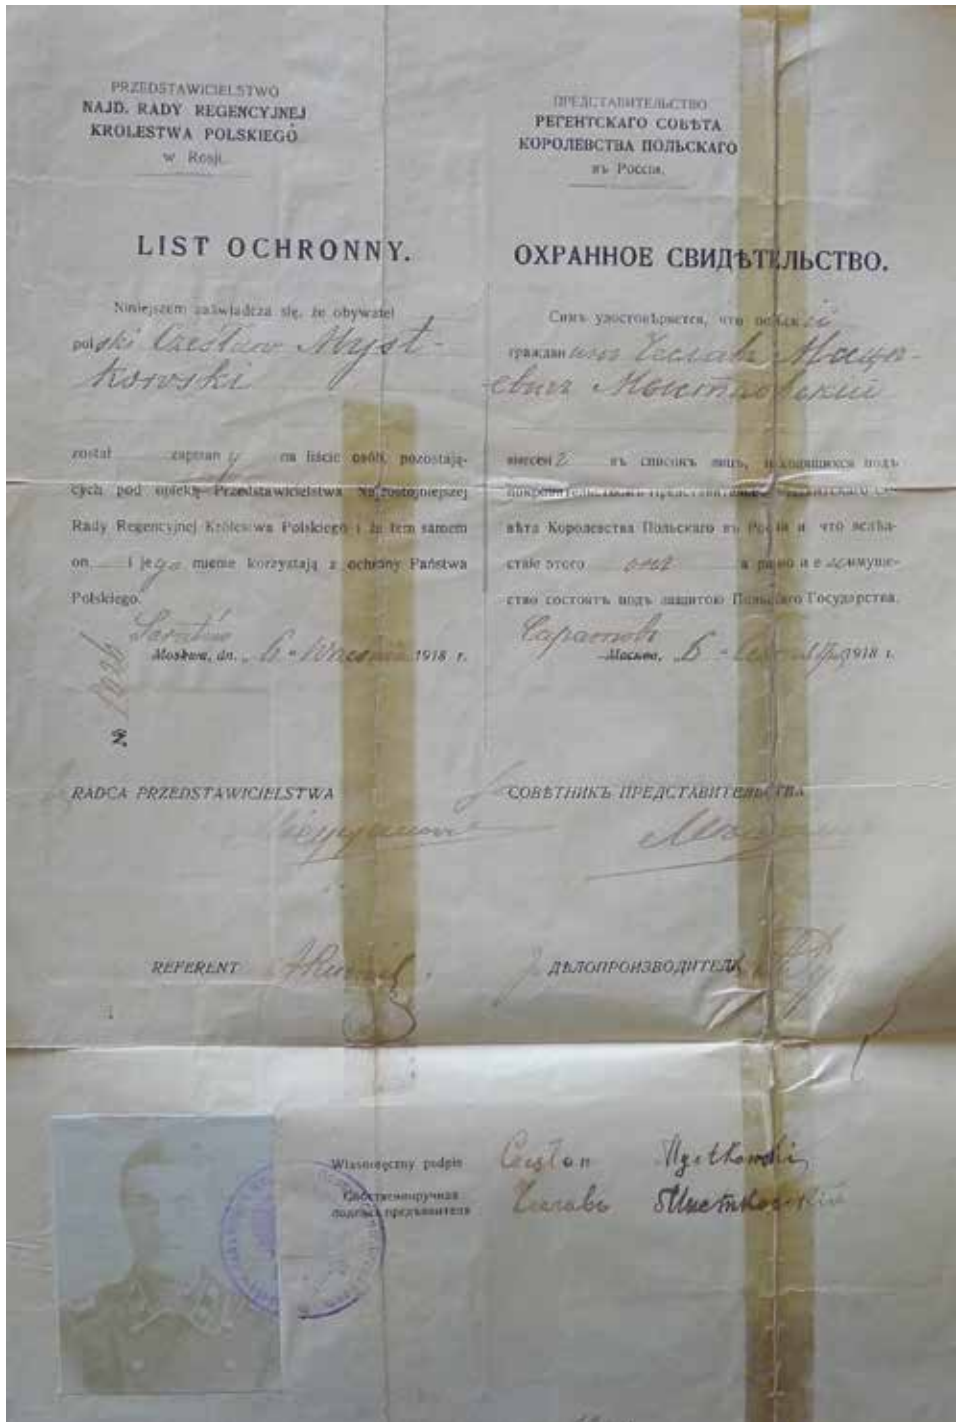 PRZEDSTAWICIELSTWO
NAJD. RADY REGENCYJNEJ
KROLESTWA POLSKIEGO
w Rosji.
LIST OCHRONNY.
Niniejszem zaświadcza się, że obywatel
polski Czesław Myst-
kowski
został zapisany na liście osób, pozostają-
cych pod opieką Przedstawicielstwa Najdostojniejszej
Rady Regencyjnej Królestwa Polskiego i że tem samem
on i jego mienie korzystają z ochrony Państwa
Polskiego.
Saratów
Moskwa, dn. „6" Września 1918 r.
RADCA PRZEDSTAWICIELSTWA
REFERENT
ПРЕДСТАВИТЕЛЬСТВО
РЕГЕНТСКАГО СОВѢТА
КОРОЛЕВСТВА ПОЛЬСКАГО
въ Россіи.
ОХРАННОЕ СВИДѢТЕЛЬСТВО.
Симъ удостовѣряется, что польскій
гражданинъ Чеславъ
евичъ Мыстковскій
внесен въ списокъ лицъ, находящихся подъ
покровительствомъ Представительства Регентскаго Со-
вѣта Королевства Польскаго въ Россіи и что вслѣд-
ствіе этого онъ а равно и е имуще-
ство состоятъ подъ защитою Польскаго Государства.
Саратовъ
Москва, „6" Сентября 1918 г.
СОВѢТНИКЪ ПРЕДСТАВИТЕЛЬСТВА
ДѢЛОПРОИЗВОДИТЕЛЬ
Własnoręczny podpis Czesłan Mystkowski
Собственноручная
подпись предъявителя Чеславъ Мистковскій